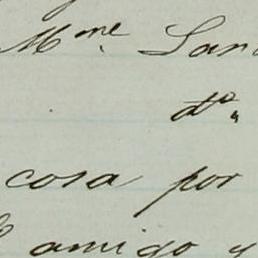 Mme San
do
cosa por
amigo y